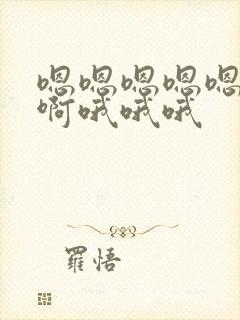 嗯嗯嗯嗯嗯
啊哦哦哦
羅悟